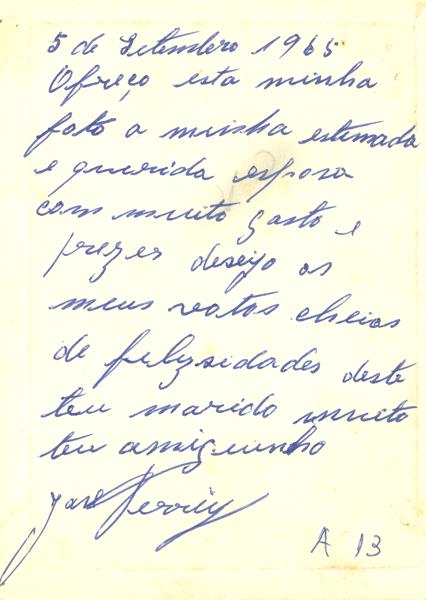 5 de Setembro 1965
Ofreço esta minha
foto a minha estimada
e querida esposa
com muito gosto e
prezer desejo os
meus votos cheios
de felizsidades deste
teu marido muito
teu amiguinho
José
A 13